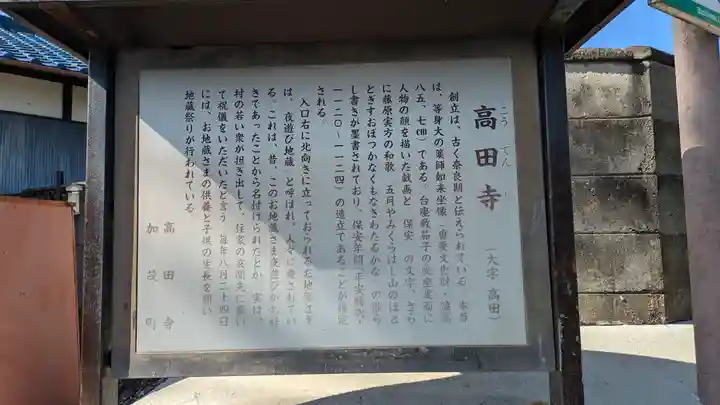 高田寺
こうでんじ
(大字 高田)
創立は、古く奈良期と伝えられている。本尊
は、等身大の薬師如来坐像(重要文化財・像高
八五、七㎝)である。台座敷茄子の受座裏面に
人物の顔を描いた戯画と「保安」の文字、さら
に藤原実方の和歌「五月やみくらはし山のほと
とぎすおぼつかなくもなきわたるかな」の散ら
し書きが墨書されており、保安年間(平安後期・
一一二〇~一一二四)の造立であることが推定
される。
入口右に北向きに立っておられるお地蔵さま
は、夜遊び地蔵と呼ばれ、人々に愛されてい
る。これは、昔、このお地蔵さま夜遊びがお好
きであったことから名付けられたとか。実は、
村の若い衆が担ぎ出して、住家の玄関先に置い
て祝儀をいただいたと言う。毎年八月二十四日
には、お地蔵さまの供養と子供の生長を願い
地蔵祭りが行われている。
高田寺
加茂町